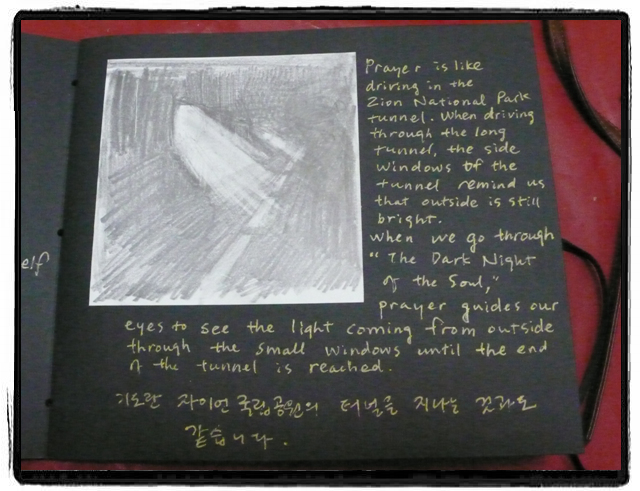 elf
Prayer is like
driving in the
Zion National Park
tunnel. When driving
through the long
tunnel, the side
windows of the
tunnel remind us
that outside is still
bright.
When we go through
"The Dark Night
of the Soul,"
prayer guides our
eyes to see the light coming from outside
through the small windows until the end
of the tunnel is reached.
기도란 자이언 국립공원의 터널을 지나는 것과도
같습니다.